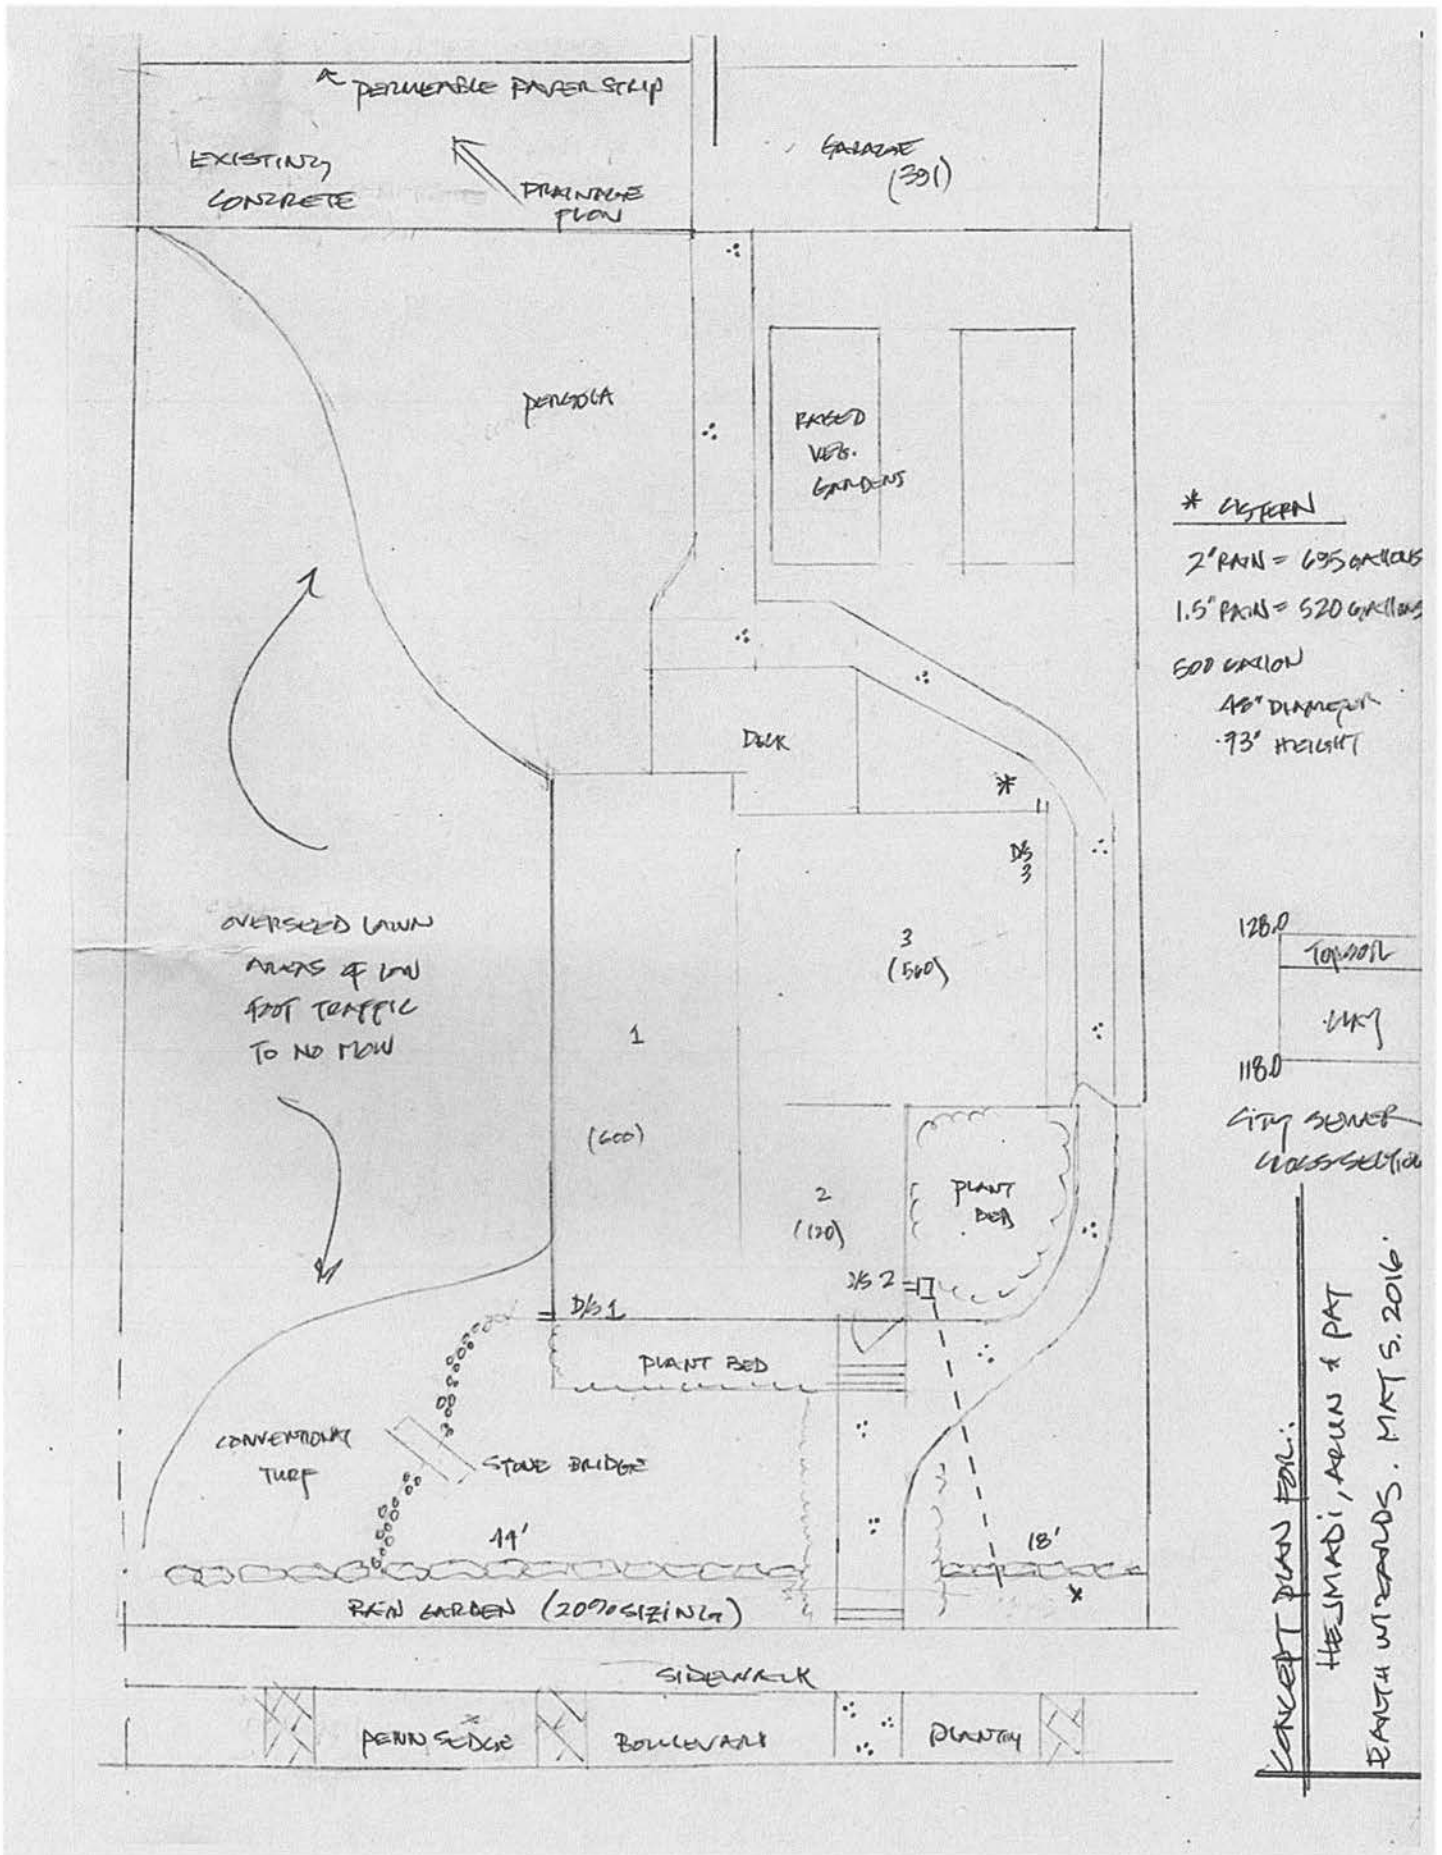 PERMEABLE PAVER STRIP
EXISTING
CONCRETE
DRAINAGE
FLOW
GARAGE
(391)
PERGOLA
RAISED
VEG.
GARDENS
* CISTERN
2" RAIN = 695 GALLONS
1.5" RAIN = 520 GALLONS
500 GALLON
48" DIAMETER
93" HEIGHT
DECK
*
D/S
3
3
(560)
OVERSEED LAWN
AREAS OF LOW
FOOT TRAFFIC
TO NO MOW
1
(600)
128.0
TOPSOIL
CLAY
118.0
CITY SEWER
CROSS SECTION
PLANT
BED
2
(120)
D/S 2
D/S 1
PLANT BED
CONVENTIONAL
TURF
STONE BRIDGE
44'
18'
RAIN GARDEN (20% SIZING)
x
SIDEWALK
PENN SEDGE
BOULEVARD
PLANTING
CONCEPT PLAN FOR:
HEJMADI, ARUN & PAT
EARTH WIZARDS. MAY 5. 2016.